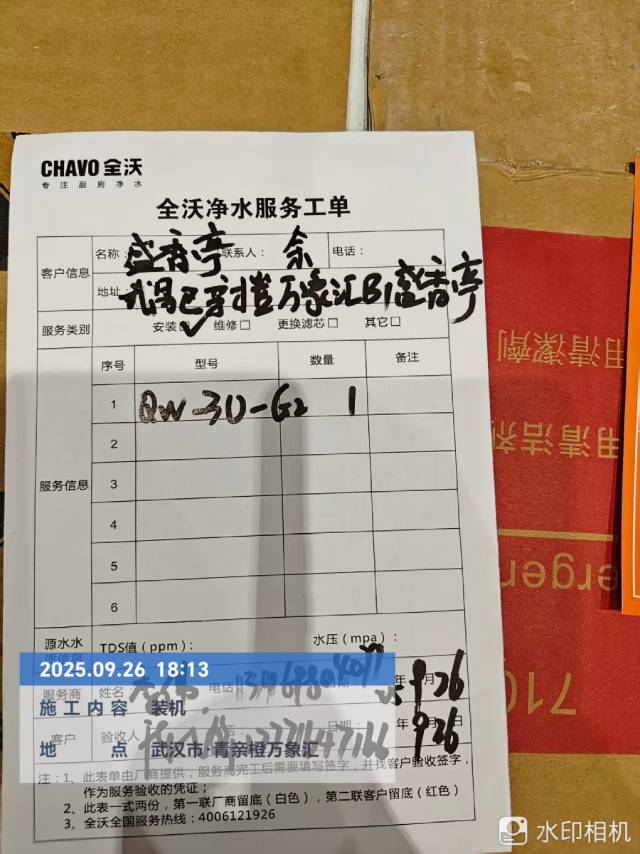 CHAVO 全沃
专注厨房净水
全沃净水服务工单
客户信息
名称: 盛香亭 联系人: 余 电话:
地址: 万象汇B1盛香亭
服务类别 安装☑ 维修□ 更换滤芯□ 其它□
服务信息
序号 型号 数量 备注
1 QW-30-G2 1
2
3
4
5
6
源水水 TDS值(ppm): 水压(mpa):
2025.09.26 18:13
服务商 姓名 电话 年 9月26
施工内容 装机
客户 验收人 日期: 年 9 26
地 点 武汉市·青亲橙万象汇
注:1、此表单由厂商提供,服务商完工后需要填写签字,并找客户验收签字,
作为服务验收的凭证;
2、此表一式两份,第一联厂商留底(白色),第二联客户留底(红色)
3、全沃全国服务热线:4006121926
用清潔劑
用清洁剂
ergen
710
水印相机